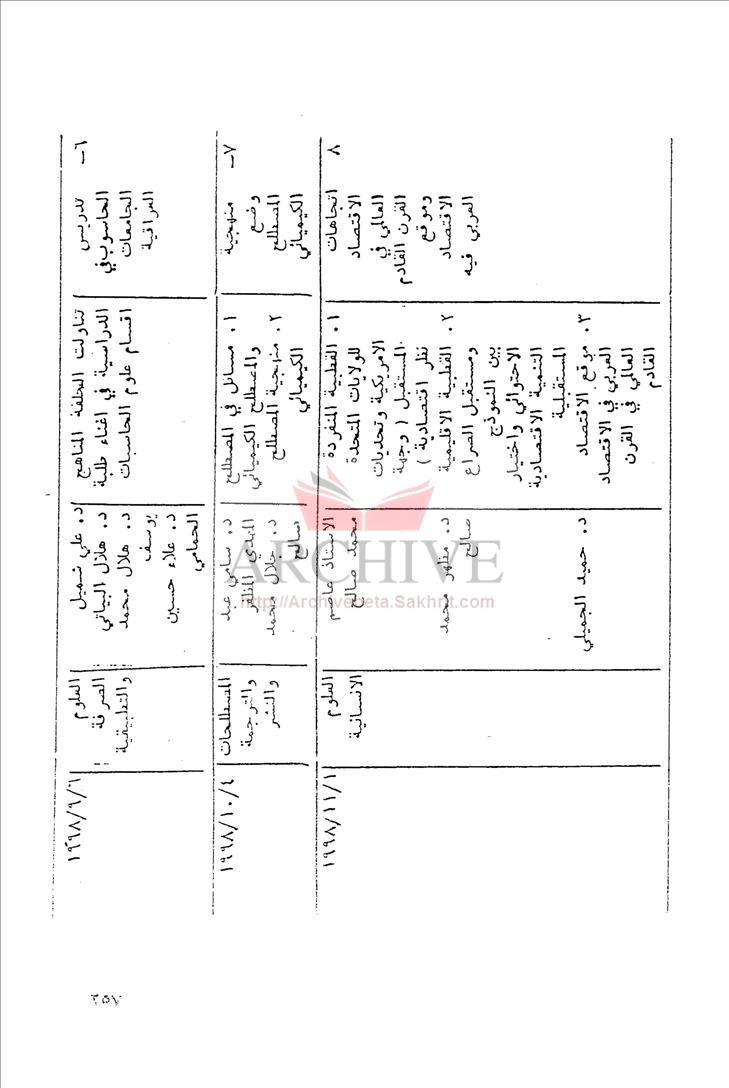 ٦-
تدريس
الحاسوب في
الجامعات
العراقية
تناولت الحلقة المناهج
الدراسية في اغناء طلبة
اقسام علوم الحاسبات
د. علي شميل
د. هلال البياتي
د. هلال محمد
يوسف
د. علاء حسين
الحمامي
العلوم
الصرفة
والتطبيقية
١٩٩٨/٦/٦
٧-
منهجية
وضع
المصطلح
الكيميائي
١. مسائل في المصطلح
والمصطلح الكيميائي
٢. منهجية المصطلح
الكيميائي
د. سامي عبد
المهدي المظفر
د. جلال محمد
صالح
المصطلحات
والترجمة
والنشر
١٩٩٨/١٠/٤
٨
اتجاهات
الاقتصاد
العالمي في
القرن القادم
وموقع
الاقتصاد
العربي فيه
١. القطبية المنفردة
للولايات المتحدة
الامريكية وتحديات
المستقبل (وجهة
نظر اقتصادية)
٢. القطبية الاقليمية
ومستقبل الصراع
بين النموذج
الاحتوائي واختيار
التنمية الاقتصادية
المستقبلية
٣. موقع الاقتصاد
العربي في الاقتصاد
العالمي في القرن
القادم
الاستاذ عاصم
محمد صالح
د. مظهر محمد
صالح
د. حميد الجميلي
العلوم
الانسانية
١٩٩٨/١١/١
٢٥٧
ARCHIVE
http://Archivebeta.Sakhrit.com